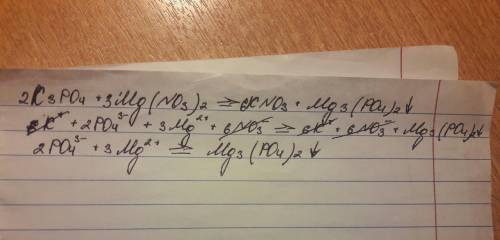 2K3PO4 + 3Mg(NO3)2 = 6KNO3 + Mg3(PO4)2↓
6K⁺ + 2PO4³⁻ + 3Mg²⁺ + 6NO3⁻ = 6K⁺ + 6NO3⁻ + Mg3(PO4)2↓
2PO4³⁻ + 3Mg²⁺ = Mg3(PO4)2↓